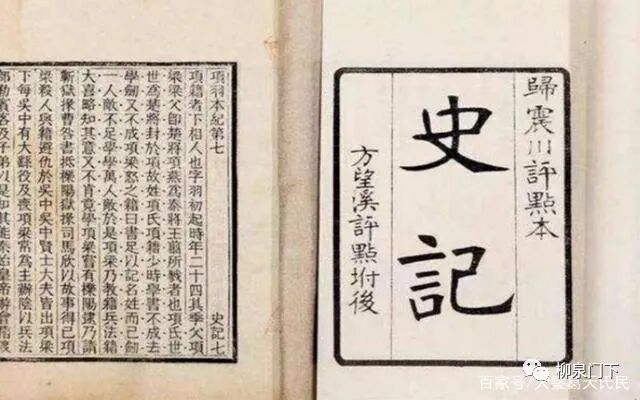 歸震川評點本
史記
方望溪評點坿後
項羽本紀第七 史記七
項籍者下相人也字羽初起時年二十四其季父項
梁梁父卽楚將項燕爲秦將王翦所戮者也項氏世
世爲楚將封於項故姓項氏項籍少時學書不成去
學劒又不成項梁怒之籍曰書足以記名姓而已劒
一人敵不足學學萬人敵於是項梁乃敎籍兵法籍
大喜略知其意又不肯竟學項梁嘗有櫟陽逮乃請
蘄獄掾曹咎書抵櫟陽獄掾司馬欣以故事得已項
梁殺人與籍避仇於吳中吳中賢士大夫皆出項梁
下每吳中有大繇役及喪項梁常爲主辦陰以兵法
部勒賓客及子弟以是知其能秦始皇帝游會稽渡
柳泉门下
百家号